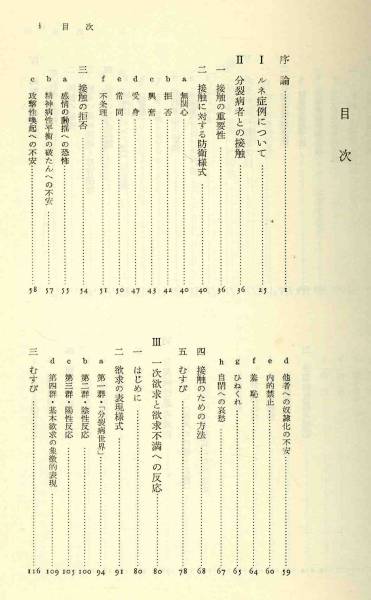 i 目次
目次
序論……1
I ルネ症例について……25
II 分裂病者との接触……36
一 接触の重要性……36
二 接触に対する防衛様式……40
a 無関心……40
b 拒否……42
c 興奮……43
d 受身……47
e 常同……50
f 不条理……51
三 接触の拒否……54
a 感情の動揺への恐怖……55
b 精神病性平衡の破たんへの不安……57
c 攻撃性喚起への不安……58
d 他者への奴隷化の不安……59
e 内的禁止……60
f 羞恥……64
g ひねくれ……65
h 自閉への哀愁……67
四 接触のための方法……68
五 むすび……78
III 一次欲求と欲求不満への反応……80
一 はじめに……80
二 欲求の表現様式……91
a 第一群・「分裂病世界」……94
b 第二群・陰性反応……100
c 第三群・陽性反応……103
d 第四群・基本欲求の象徴的表現……109
三 むすび……116